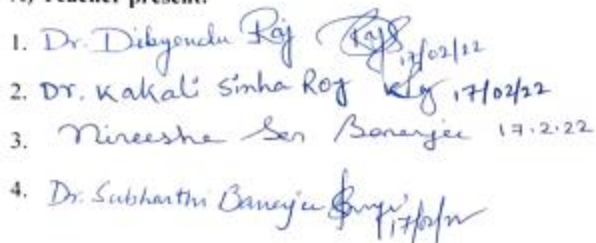 Teacher present:
1. Dr. Dibyendu Roy 17/02/22
2. Dr. Kakali Sinha Roy 17/02/22
3. Nireesha Sen Banerjee 17.2.22
4. Dr. Subharthi Banerjee 17/02/22